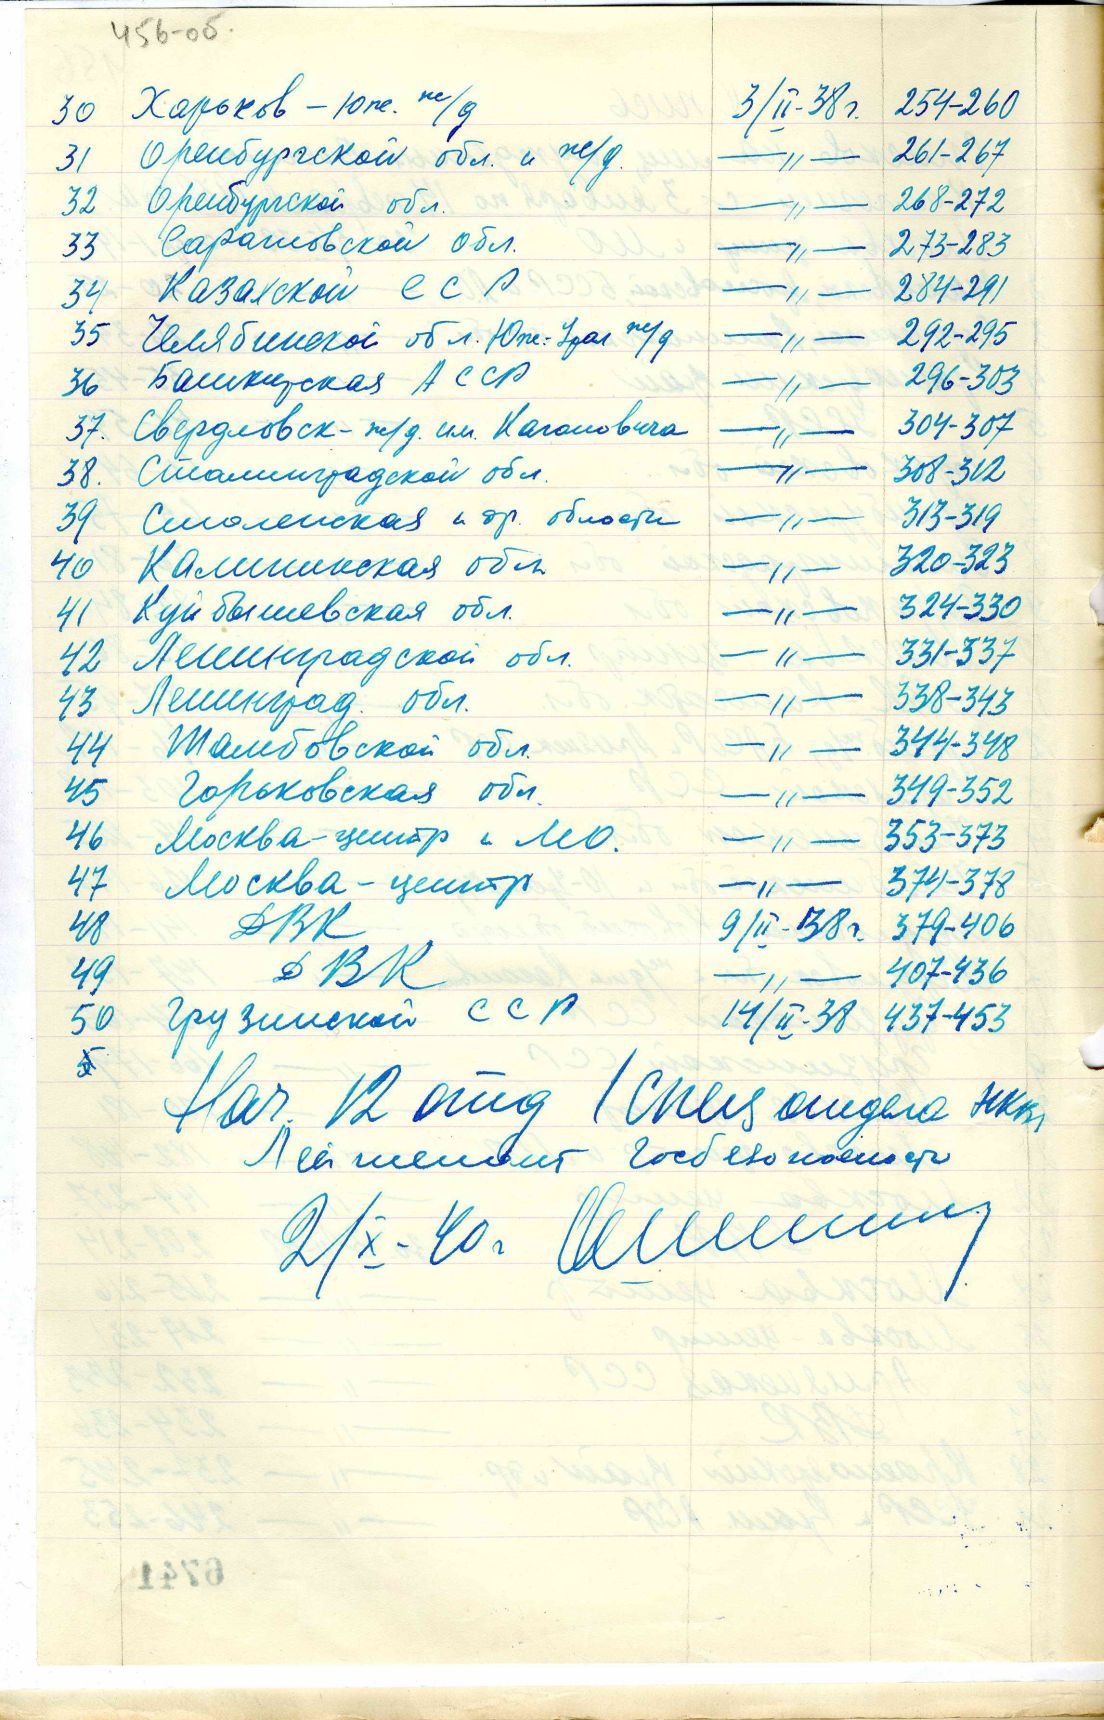 456-об.
30 Харьков – Юж. ж/д 3/II-38г. 254-260
31 Оренбургской обл. и ж/д. —〃— 261-267
32 Оренбургской обл. —〃— 268-272
33 Саратовской обл. —〃— 273-283
34 Казахской ССР —〃— 284-291
35 Челябинской обл. Юж.-Урал ж/д —〃— 292-295
36 Башкирская АССР —〃— 296-303
37. Свердловск – ж/д. им. Кагановича —〃— 304-307
38. Сталинградской обл. —〃— 308-312
39 Смоленская и др. области —〃— 313-319
40 Калининская обл. —〃— 320-323
41 Куйбышевская обл. —〃— 324-330
42 Ленинградской обл. —〃— 331-337
43 Ленинград. обл. —〃— 338-343
44 Тамбовской обл. —〃— 344-348
45 Горьковская обл. —〃— 349-352
46 Москва-центр и МО. —〃— 353-373
47 Москва – центр —〃— 374-378
48 ДВК 9/II-38г. 379-406
49 ДВК —〃— 407-436
50 Грузинской ССР 14/II-38 437-453
Нач. 12 отд 1 спец отдела НКВД
Лейтенант Госбезопасности
2/X-40г
6741